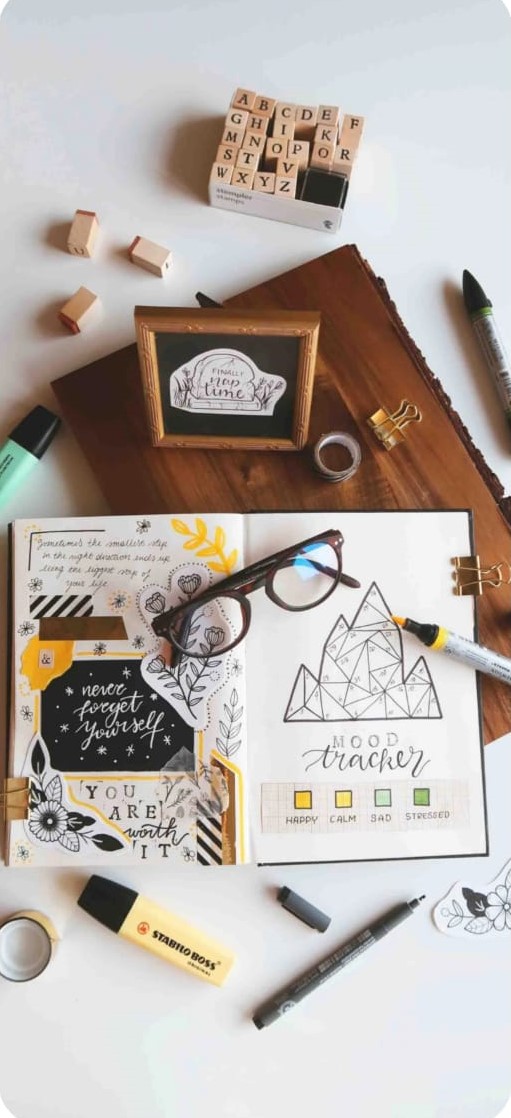 A B C D E F
G H I K
M N O P O R
S T V
W X Y Z
stampler
stamps
FINALLY
nap
time
Sometimes the smallest step
in the right direction ends up
being the biggest step of
your life.
&
never
forget
yourself
YOU
ARE
worth
IT
MOOD
tracker
HAPPY CALM SAD STRESSED
STABILO BOSS
ORIGINAL